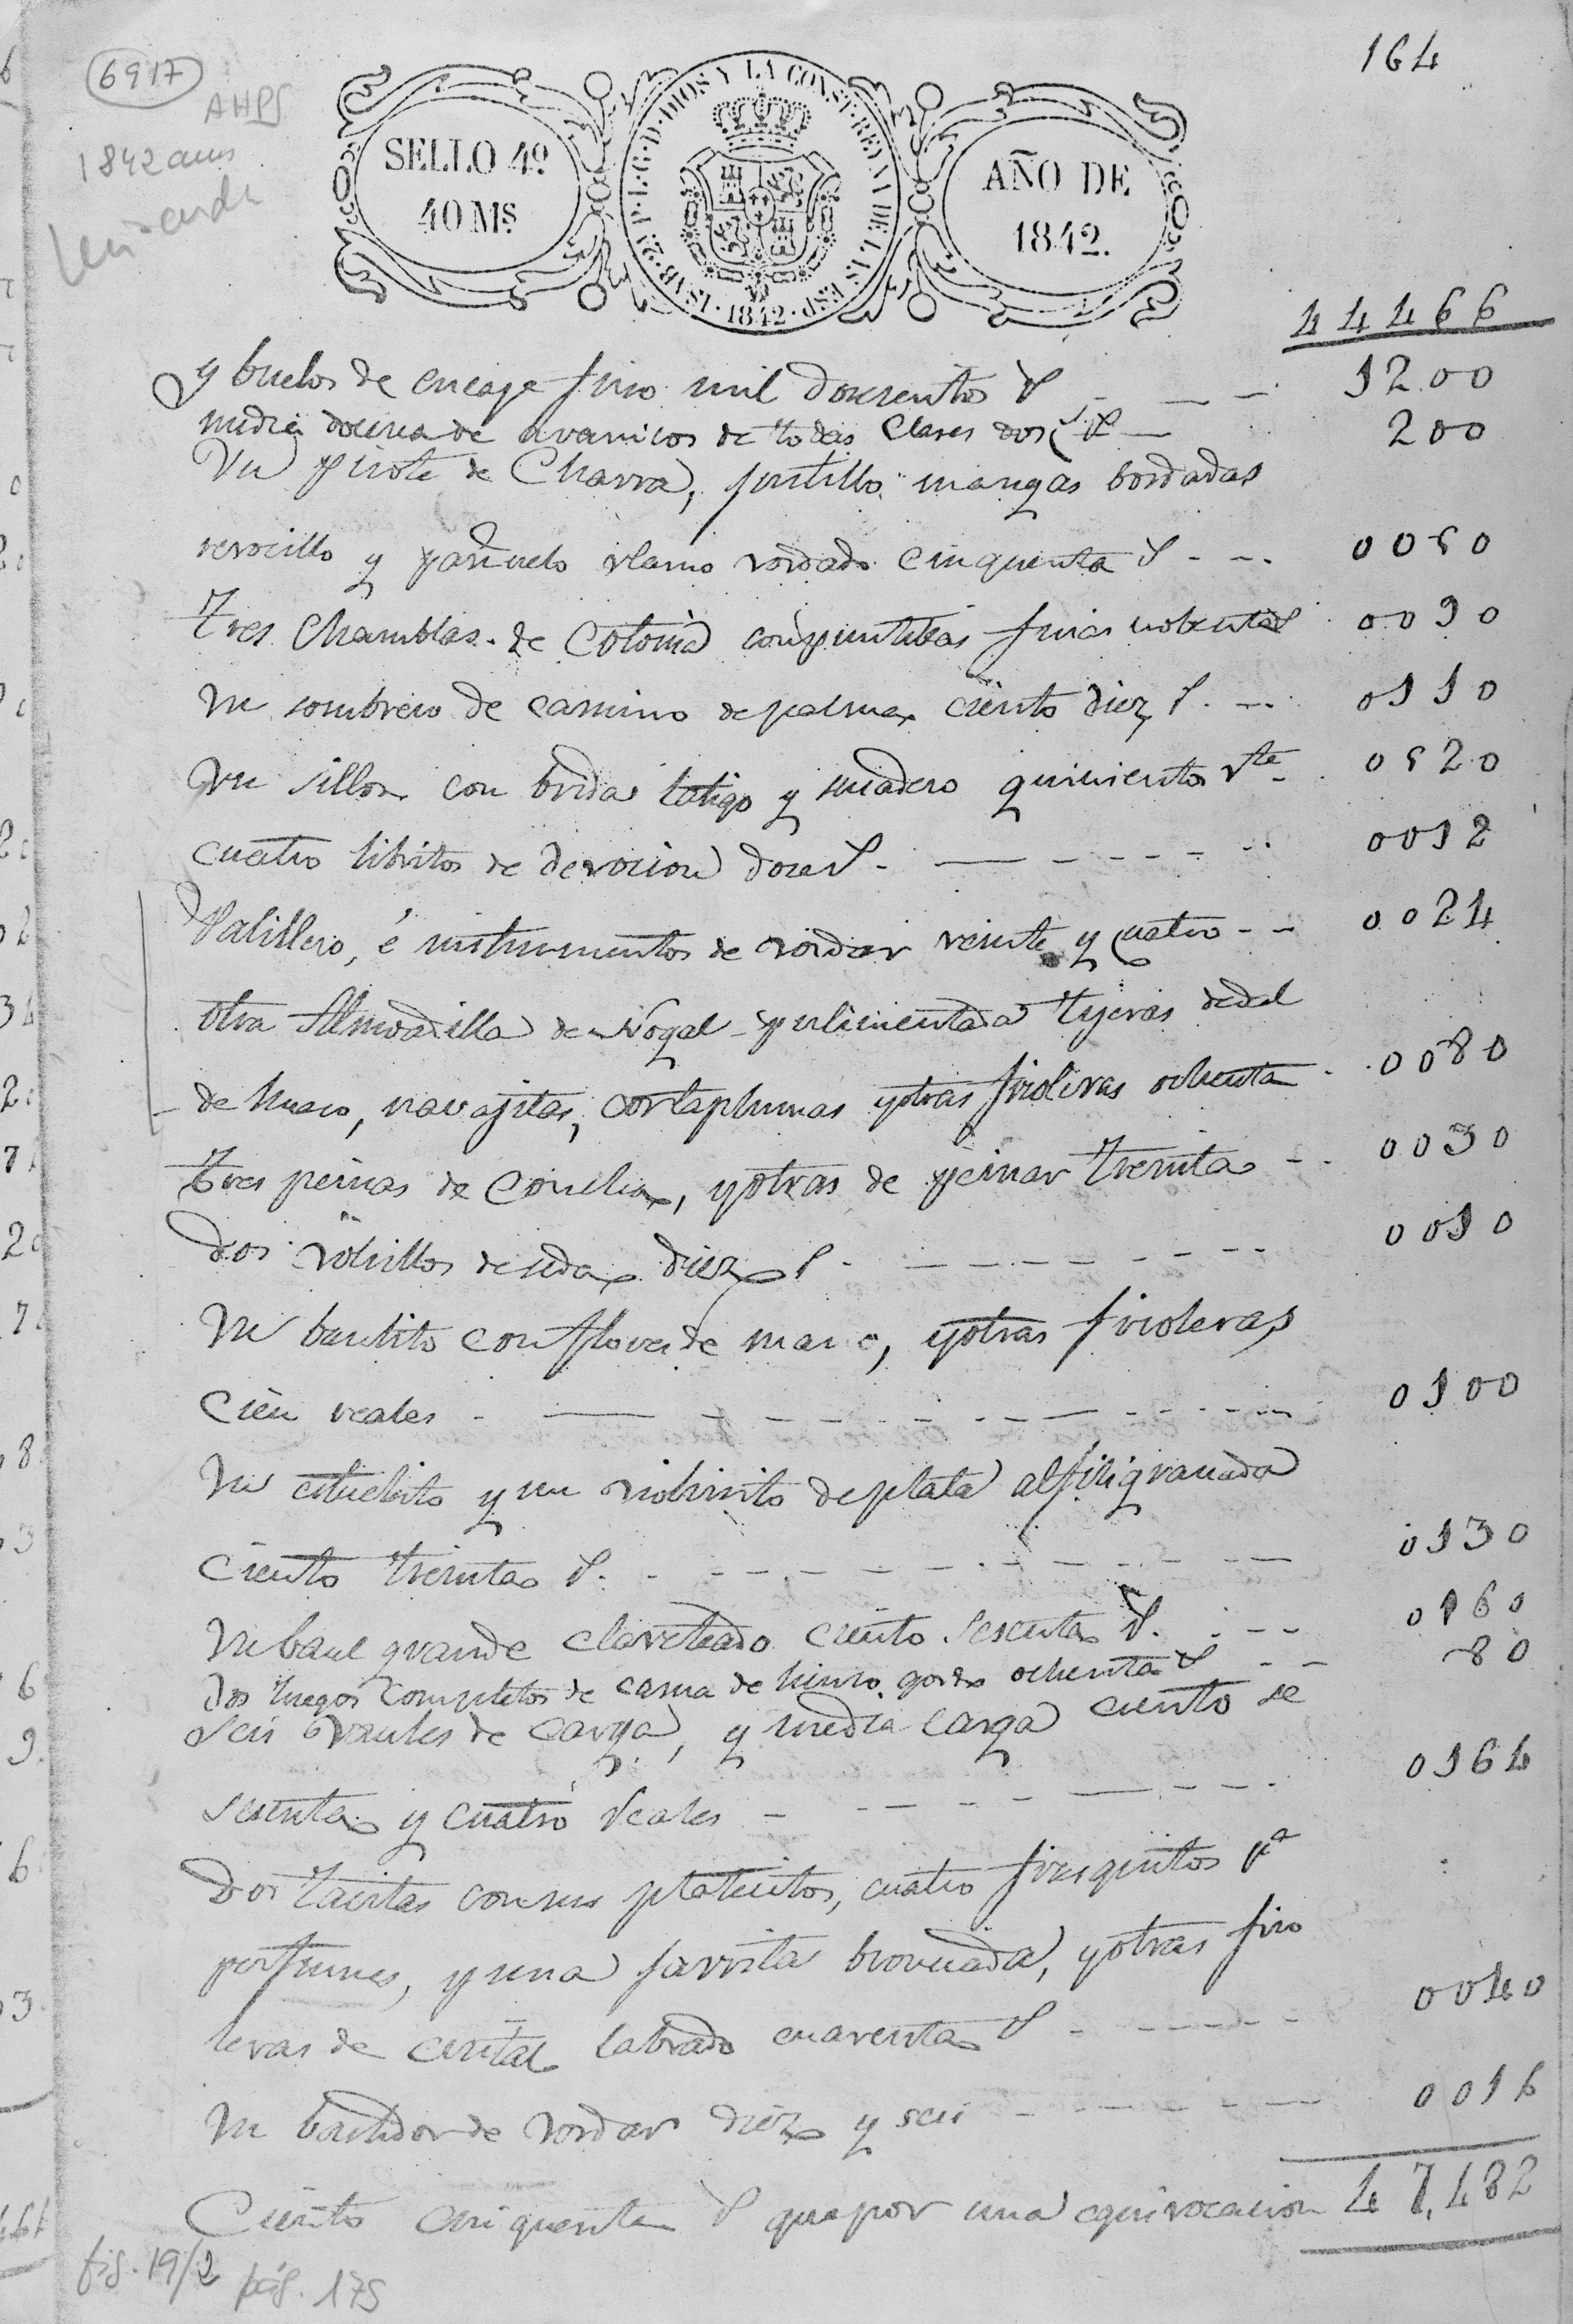 164
6917
AHPS
1842
SELLO 4º
40 Ms.
ISAB. 2ª P. L. G. D. DIOS Y LA CONST. REYNA DE LAS ESP. 1842
AÑO DE
1842.
44466
y buelos de encage fino mil doscientos r 1200
media docena de avanicos de todas clases dosc.s r 200
Un de Charra, justillo mangas bordadas
revocillo y pañuelo vordado cinquenta r 0050
Tres Chamblas de Cotonia con puntillas finas nobenta r 0090
Un sombrero de camino de palma ciento diez r 0110
Un sillon con brida latigo y sudadero quinientos vte 0520
cuatro libritos de devocion doce r 0012
Palillero, é instrumentos de vordar veinte y cuatro 0024
otra Almoadilla de Nogal pulimentada tijeras dedal
de hueso, navajitas, cortaplumas y otras firoleras ochenta 0080
Tres peinas de concha, y otras de peinar treinta 0030
Dos volsillos de seda diez r 0010
Un baulito con flores de mano, y otras firoleras
cien reales 0100
Un estuchito y un volsirito de plata alfiligranada
ciento treinta r 0130
Un baul grande claveteado ciento sesenta r 0160
Dos Juegos completos de cama de lienzo gordo ochenta r 80
Seis baules de carga, y media carga ciento se
senta y cuatro reales 0164
Dos tacitas con sus platitos, cuatro frasquitos pa
perfumes, y una jarrita bronceada, y otras firo
leras de cristal labrado cuarenta r 0040
Un bastidor de vordar diez y seis 0016
47,482
Ciento cinquenta r que por una equivocacion
fig. 19/2 pág. 175